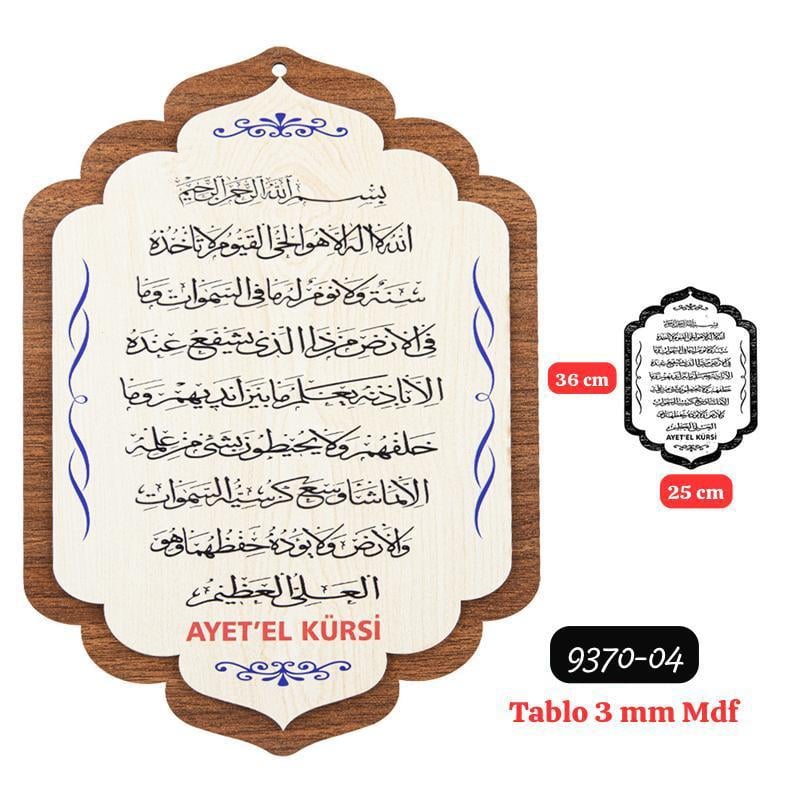 بسم الله الرحمن الرحيم
الله لا اله الا هو الحي القيوم لا تأخذه
سنة ولا نوم له ما في السموات وما
في الارض من ذا الذي يشفع عنده
الا باذنه يعلم ما بين ايديهم وما
خلفهم ولا يحيطون بشئ من علمه
الا بما شا وسع كرسيه السموات
والارض ولا يؤده حفظهما وهو
العلي العظيم
AYET'EL KÜRSİ
36 cm
25 cm
AYET'EL KÜRSİ
9370-04
Tablo 3 mm Mdf